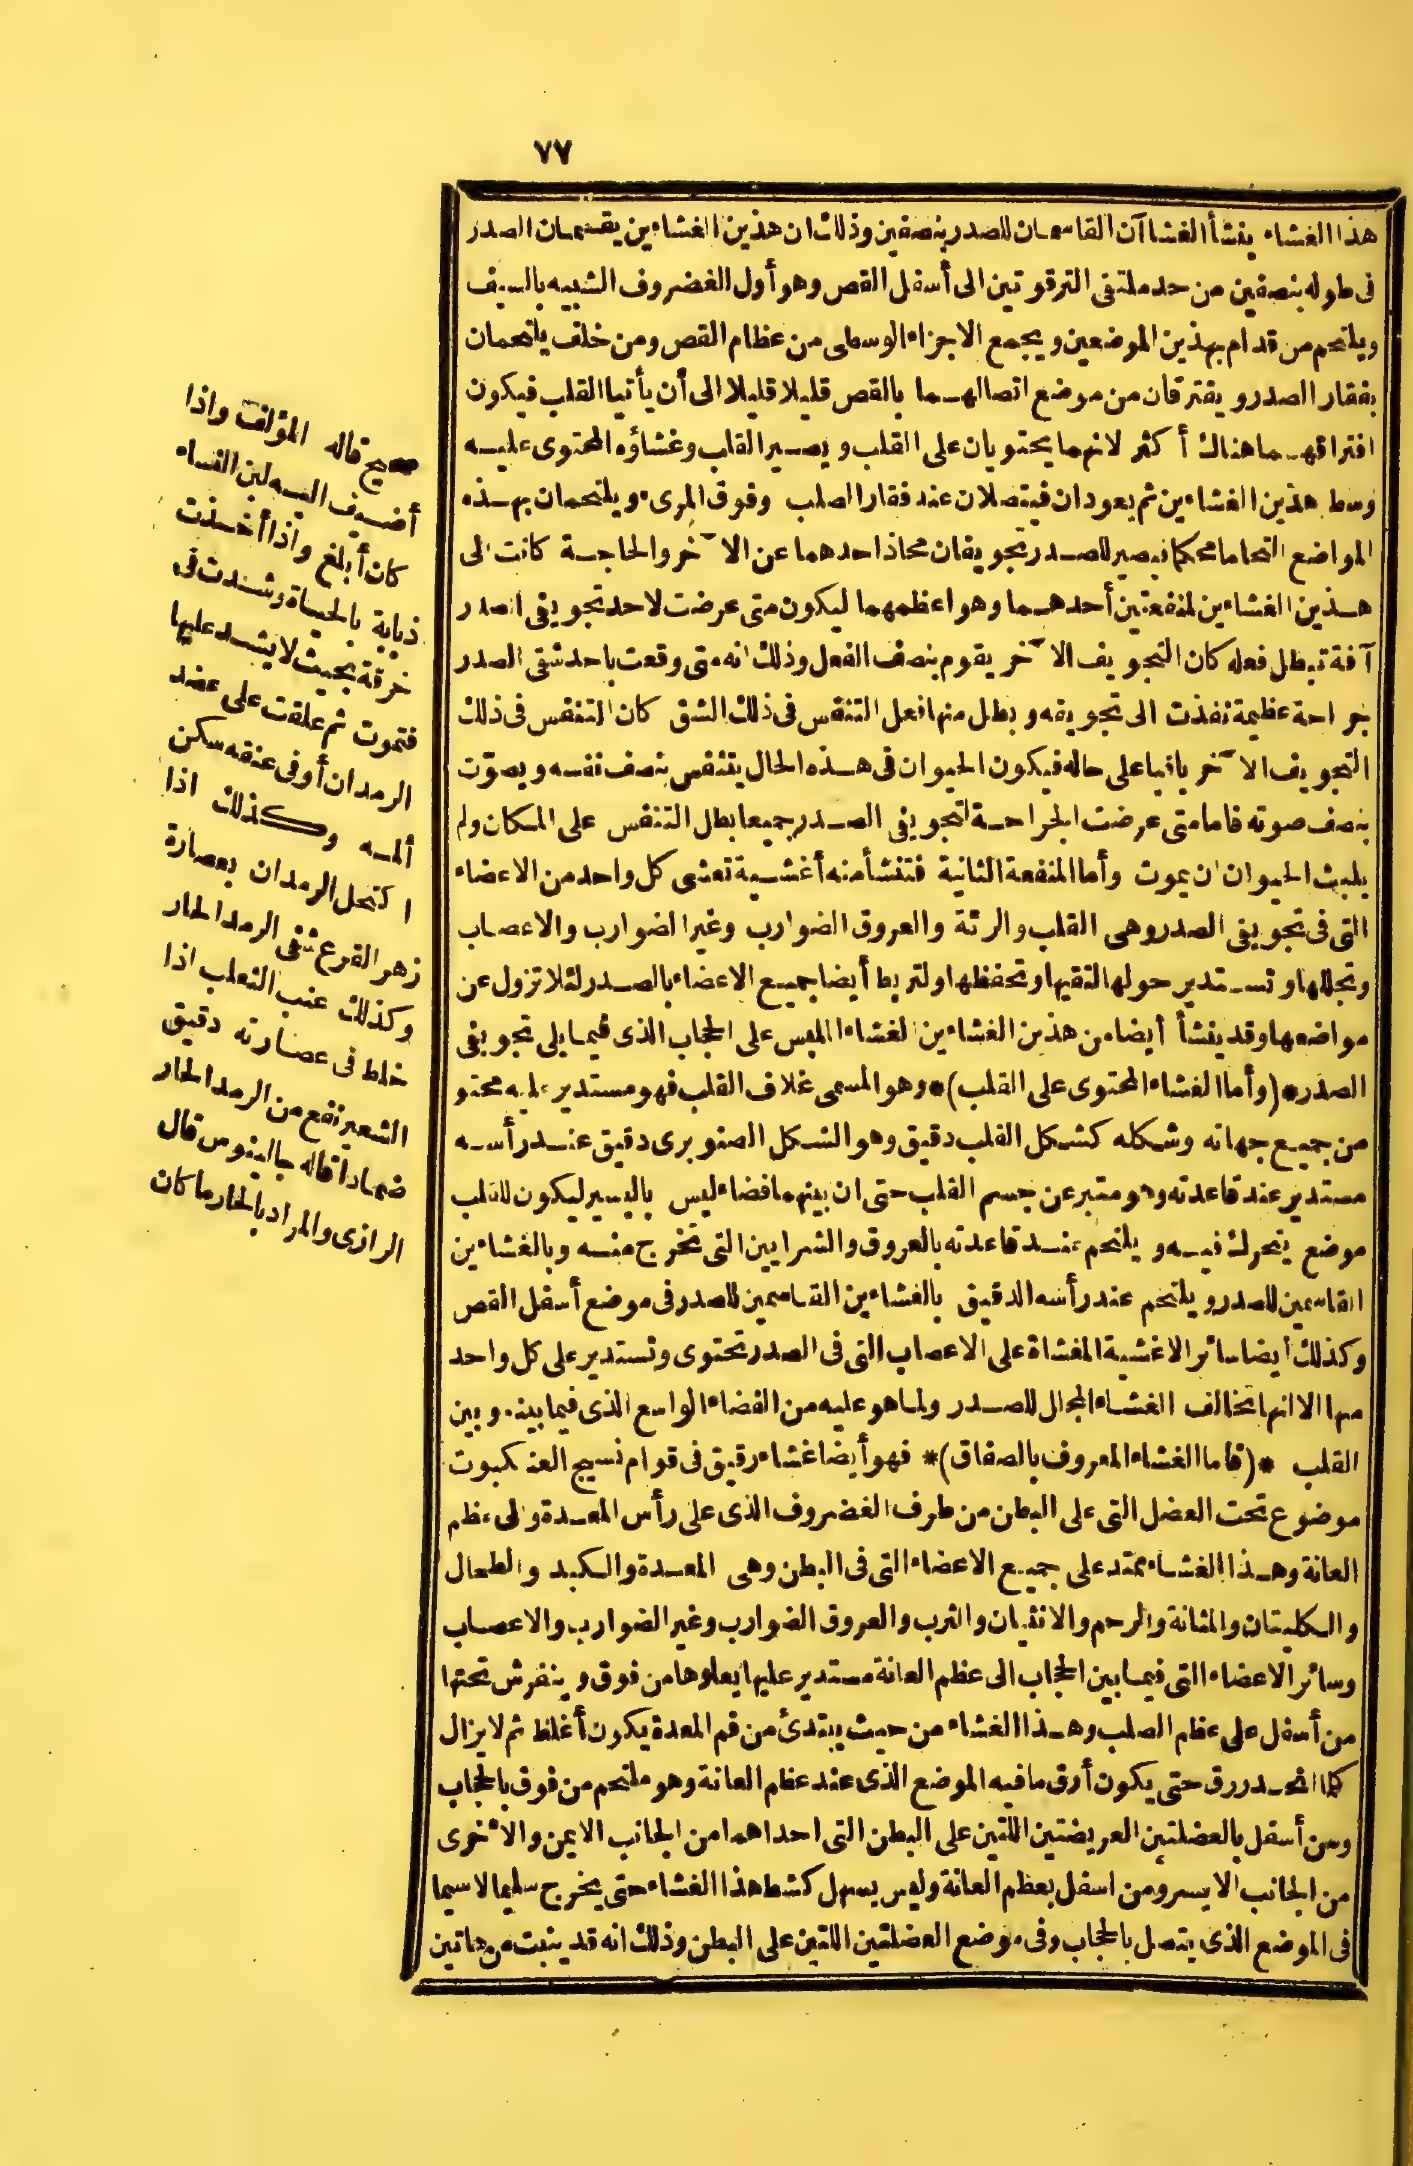 ٧٧
هذا الغشاء ينشأ الغشاآن القاسمان للصدر بنصفين وذلك ان هذين الغشاءين يقسمان الصدر
فى طوله بنصفين من حد ملتقى الترقوتين الى أسفل القص وهو أول الغضروف الشبيه بالسيف
ويلتحم من قدام بهذين الموضعين ويجمع الاجزاء الوسطى من عظام القص ومن خلف يلتحمان
بفقار الصدر ويفترقان من موضع اتصالهما بالقص قليلا قليلا الى أن يأتيا القلب فيكون
افتراقهما هناك أكثر لانهما يحتويان على القلب ويصير القلب وغشاؤه المحتوى عليه
وسط هذين الغشاءين ثم يعودان فيتصلان عند فقار الصلب وفوق المرىء ويلتحمان بهذه
المواضع التحاما محكما فيصير للصدر تجويفان محاذ احدهما عن الآخر والحاجة كانت الى
هذين الغشاءين لمنفعتين أحدهما وهو اعظمهما ليكون متى عرضت لاحد تجويفى الصدر
آفة تبطل فعله كان التجويف الآخر يقوم بنصف الفعل وذلك انه متى وقعت باحد شقى الصدر
جراحة عظيمة نفذت الى تجويفه وبطل منها فعل التنفس فى ذلك الشق كان التنفس فى ذلك
التجويف الآخر باقيا على حاله فيكون الحيوان فى هذه الحال يتنفس بنصف نفسه ويصوّت
بنصف صوته فاما متى عرضت الجراحة لتجويفى الصدر جميعا بطل التنفس على المكان ولم
يلبث الحيوان ان يموت وأما المنفعة الثانية فتنشأ منه أغشية تغشى كل واحد من الاعضاء
التى فى تجويفى الصدر وهى القلب والرئة والعروق الضوارب وغير الضوارب والاعصاب
وتجللها وتستدير حولها لتقيها وتحفظها ولتربط أيضا جميع الاعضاء بالصدر لئلا تزول عن
مواضعها وقد ينشأ أيضا من هذين الغشاءين الغشاء الملبس على الحجاب الذى فيما يلى تجويفى
الصدر *(وأما الغشاء المحتوى على القلب)* وهو المسمى غلاف القلب فهو مستدير عليه محتو
من جميع جهاته وشكله كشكل القلب دقيق وهو الشكل الصنوبرى دقيق عند رأسه
مستدير عند قاعدته وهو متبر عن جسم القلب حتى ان بينهما فضاء ليس باليسير ليكون للقلب
موضع يتحرك فيه ويلتحم عند قاعدته بالعروق والشرايين التى تخرج منه وبالغشاءين
القاسمين للصدر ويلتحم عند رأسه الدقيق بالغشاءين القاسمين للصدر فى موضع أسفل القص
وكذلك أيضا سائر الاغشية المغشاة على الاعصاب التى فى الصدر تحتوى وتستدير على كل واحد
منها الا انها تخالف الغشاء المجال للصدر ولما هو عليه من الفضاء الواسع الذى فيما بينه وبين
القلب *(فاما الغشاء المعروف بالصفاق)* فهو أيضا غشاء رقيق فى قوام نسيج العنكبوت
موضوع تحت العضل التى على البطن من طرف الغضروف الذى على رأس المعدة والى عظم
العانة وهذا الغشاء ممتد على جميع الاعضاء التى فى البطن وهى المعدة والكبد والطحال
والكليتان والمثانة والرحم والانثيان والثرب والعروق الضوارب وغير الضوارب والاعصاب
وسائر الاعضاء التى فيما بين الحجاب الى عظم العانة مستدير عليها يعلوها من فوق وينفرش تحتها
من أسفل على عظم الصلب وهذا الغشاء من حيث يبتدئ من فم المعدة يكون أغلظ ثم لا يزال
كلما انحدر رق حتى يكون أرق ما فيه الموضع الذى عند عظم العانة وهو ملتحم من فوق بالحجاب
ومن أسفل بالعضلتين العريضتين اللتين على البطن التى احداهما من الجانب الايمن والاخرى
من الجانب الايسر ومن اسفل بعظم العانة وليس يسهل كشط هذا الغشاء حتى يخرج سليما لاسيما
فى الموضع الذى يتصل بالحجاب وفى موضع العضلتين اللتين على البطن وذلك انه قد ينبت من هاتين
صحيح قاله المؤلف واذا
أضيف اليه لبن النساء
كان أبلغ واذا أخذت
ذبابة بالحياة وشدت فى
خرقة بحيث لا يشد عليها
فتموت ثم علقت على عضد
الرمدان أو فى عنقه سكن
ألمه وكذلك اذا
اكتحل الرمدان بعصارة
زهر القرع شفى الرمد الحار
وكذلك عنب الثعلب اذا
خلط فى عصارته دقيق
الشعير نفع من الرمد الحار
ضمادا قاله جالينوس قال
الرازى والمراد بالحار ما كان